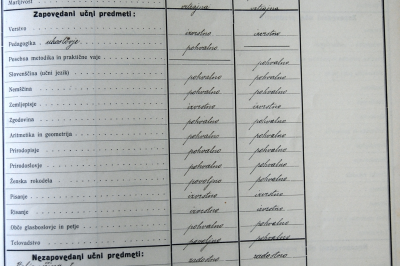 Marljivost
Zapovedani učni predmeti:
Verstvo izvrstno izvrstno
Pedagogika pohvalno
Posebna metodika in praktične vaje pohvalno
Slovenščina (učni jezik) pohvalno pohvalno
Nemščina pohvalno pohvalno
Zemljepisje izvrstno izvrstno
Zgodovina pohvalno pohvalno
Aritmetika in geometrija pohvalno pohvalno
Prirodopisje pohvalno pohvalno
Prirodoslovje pohvalno pohvalno
Ženska ročna dela povoljno pohvalno
Pisanje izvrstno izvrstno
Risanje izvrstno izvrstno
Obče glasboslovje in petje pohvalno pohvalno
Telovadstvo povoljno pohvalno
Nezapovedani učni predmeti: